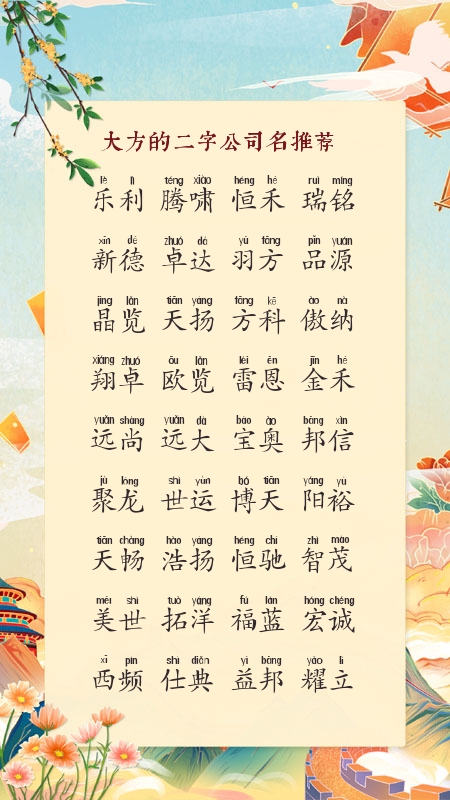 大方的二字公司名推荐
lè lì téng xiào héng hé ruì míng
乐利 腾啸 恒禾 瑞铭
xīn dé zhuó dá yǔ fāng pǐn yuán
新德 卓达 羽方 品源
jīng lǎn tiān yáng fāng kē ào nà
晶览 天扬 方科 傲纳
xiáng zhuó ōu lǎn léi ēn jīn hé
翔卓 欧览 雷恩 金禾
yuǎn shàng yuǎn dà bǎo ào bāng xìn
远尚 远大 宝奥 邦信
jù lóng shì yùn bó tiān yáng yù
聚龙 世运 博天 阳裕
tiān chàng hào yáng héng chí zhì mào
天畅 浩扬 恒驰 智茂
měi shì tuò yáng fú lán hóng chéng
美世 拓洋 福蓝 宏诚
xī pín shì diǎn yì bāng yào lì
西频 仕典 益邦 耀立